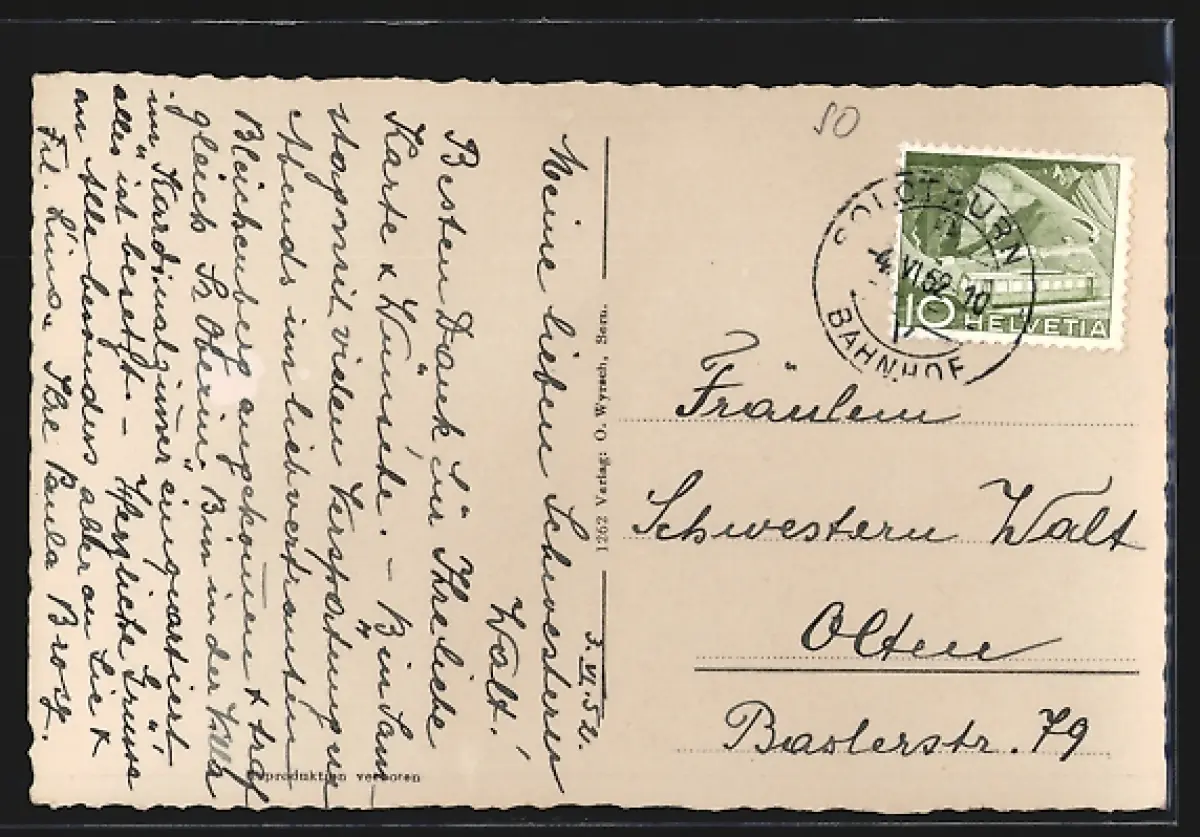 3. VI. 52.
Meine lieben Schwestern
Walt!
Besten Dank für Ihre liebe
Karte & Wünsche. – Bin Sam-
stag mit vielen Verspätungen
Abends im lieb vertrauten
Bleichenberg angekommen & traf
gleich Sr. Oberin. Bin in der Villa
im Kardinalzimmer einquartiert,
alles ist besetzt. – Herzliche Grüsse
an Alle besonders aber an Sie &
Frl. Ihre Paula
Reproduktion verboten
1262 Verlag: O. Wyrsch, Bern.
50
SOLOTHURN
4. VI. 52 - 10
BAHNHOF
10 HELVETIA
Fräulein
Schwestern Walt
Olten
Baslerstr. 79